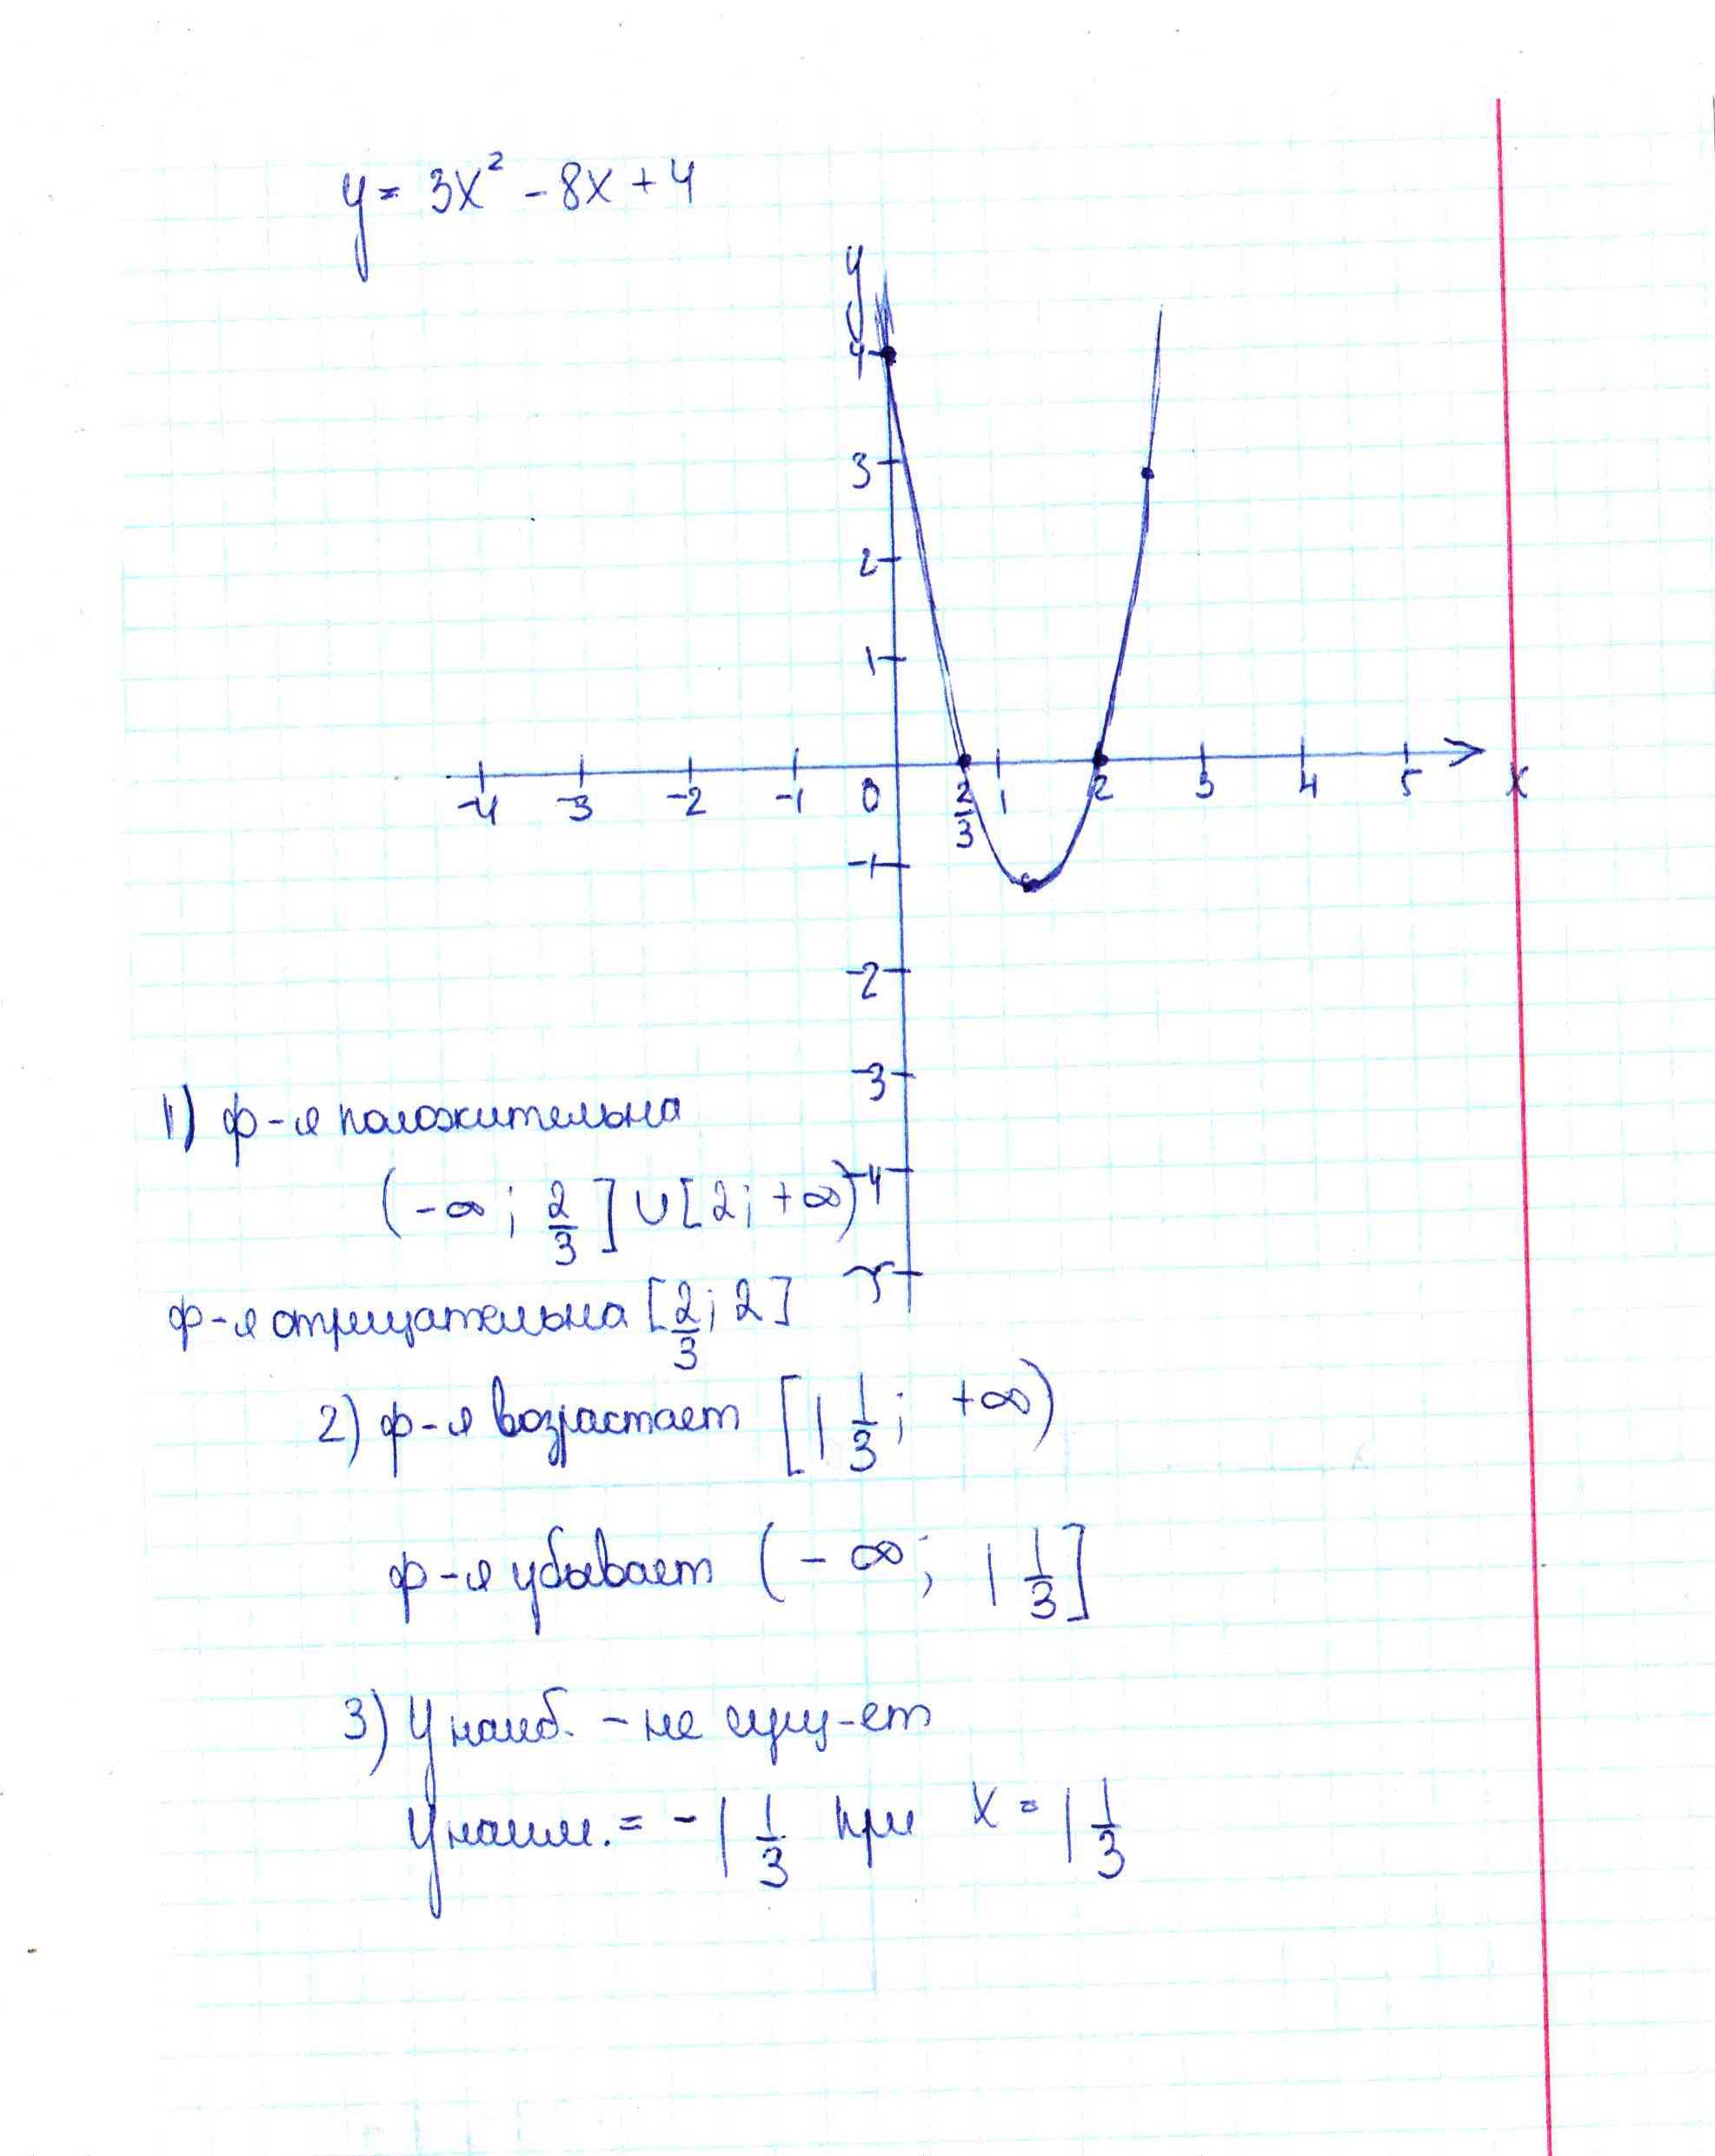 y = 3x² - 8x + 4
y
4
3
2
1
-4 -3 -2 -1 0 2/3 1 2 3 4 5 x
-1
-2
-3
-4
-5
1) ф-я положительна
(-∞; 2/3] ∪ [2; +∞)
ф-я отрицательна [2/3; 2]
2) ф-я возрастает [1 1/3; +∞)
ф-я убывает (-∞; 1 1/3]
3) y наиб. - не сущ-ет
y наим. = -1 1/3 при x = 1 1/3